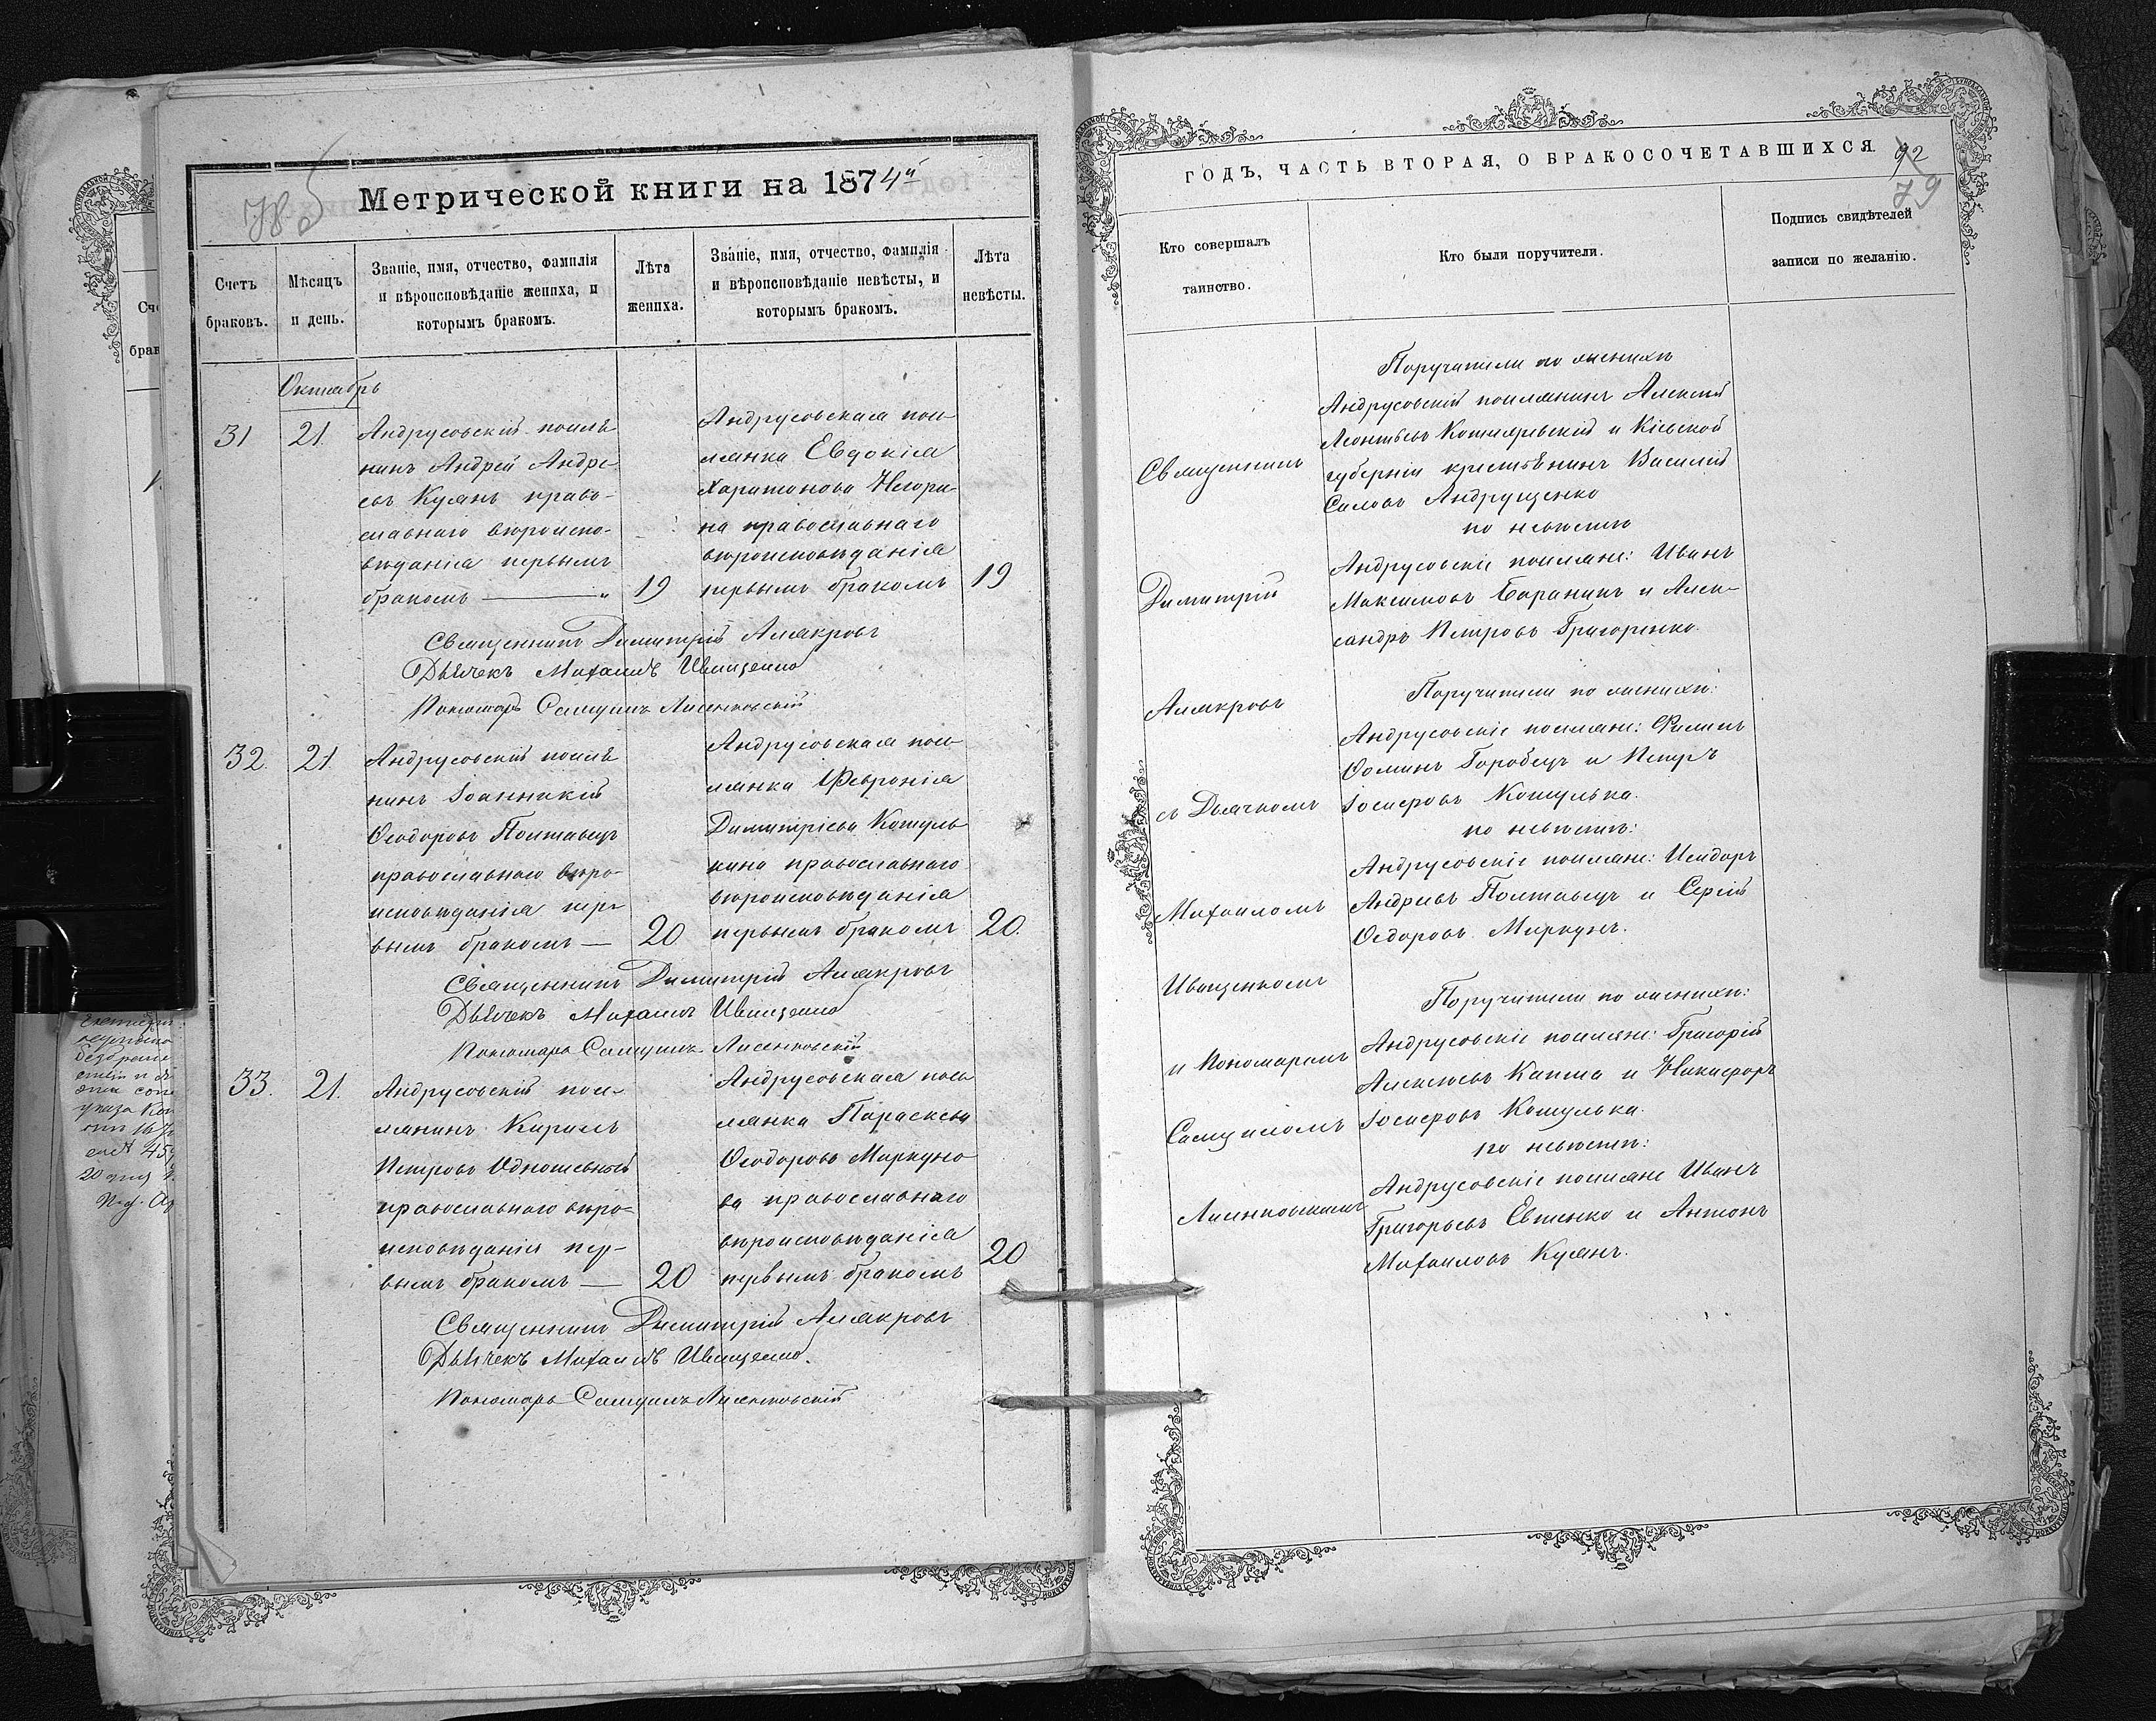 Метрической книги на 1874й
78 об
Счетъ браковъ.
Мѣсяцъ и день.
Званіе, имя, отчество, фамилія и вѣроисповѣданіе жениха, и которымъ бракомъ.
Лѣта жениха.
Званіе, имя, отчество, фамилія и вѣроисповѣданіе невѣсты, и которымъ бракомъ.
Лѣта невѣсты.
Октябрь
31
21.
Андрусовскій поселѣ
нинъ Андрей Андре
евъ Куянъ право-
славнаго вѣроиспо-
вѣданія первымъ
бракомъ — "
19
Андрусовская посе-
лянка Евдокія
Харитонова
на православнаго
вѣроисповѣданія
первымъ бракомъ
19
Священникъ Димитрій Алякровъ
Дьячекъ Михаилъ Иващенко
Пономарь Самуилъ Лисенковскій
32.
21.
Андрусовскій поселѣ
нинъ Іоанникій
Ѳеодоровъ Полтавецъ
православнаго вѣро-
исповѣданія пер-
вымъ бракомъ —
20
Андрусовская посе-
лянка Феѵронія
Димитріева Кошуль
кина православнаго
вѣроисповѣданія
первымъ бракомъ
20.
Священникъ Димитрій Алякровъ
Дьячекъ Михаилъ Иващенко
Пономарь Самуилъ Лисенковскій
33.
21.
Андрусовскій посе-
лянинъ Кирилъ
Петровъ
православнаго вѣро-
исповѣданія пер-
вымъ бракомъ —
20
Андрусовская посе
лянка Параскева
Ѳеодорова Маркуно
ва православнаго
вѣроисповѣданія
первымъ бракомъ
20
Священникъ Димитрій Алякровъ
Дьячекъ Михаилъ Иващенко.
Пономарь Самуилъ Лисенковскій
ГОДЪ, ЧАСТЬ ВТОРАЯ, О БРАКОСОЧЕТАВШИХСЯ
79
Кто совершалъ таинство.
Кто были поручители.
Подпись свидѣтелей записи по желанію.
Священникъ
Димитрій
Алякровъ
съ Дьячкомъ
Михаиломъ
Иващенкомъ
и Пономаремъ
Самуиломъ
Лисенковскимъ
Поручители по женихѣ
Андрусовскій поселянинъ Алексій
Леонтьевъ Котляревскій и Кіевской
губерніи крестьянинъ Василій
Саловъ Андрущенко
по невѣстѣ
Андрусовскіе поселяне: Иванъ
Максимовъ Баранникъ и Алек-
сандръ Петровъ Григоренко.
Поручители по женихѣ:
Андрусовскіе поселяне: Филипъ
Ѳоминъ Горобецъ и Петръ
Іосифовъ Кошулька.
по невѣстѣ:
Андрусовскіе поселяне: Исидоръ
Андреевъ Полтавецъ и Сергій
Ѳедоровъ Маркунъ.
Поручители по женихѣ:
Андрусовскіе поселяне: Григорій
Алексѣевъ Капша и Никифоръ
Іосифовъ Кошулька.
по невѣстѣ:
Андрусовскіе поселяне Иванъ
Григорьевъ Евтенко и Антонъ
Михаиловъ Куянъ.